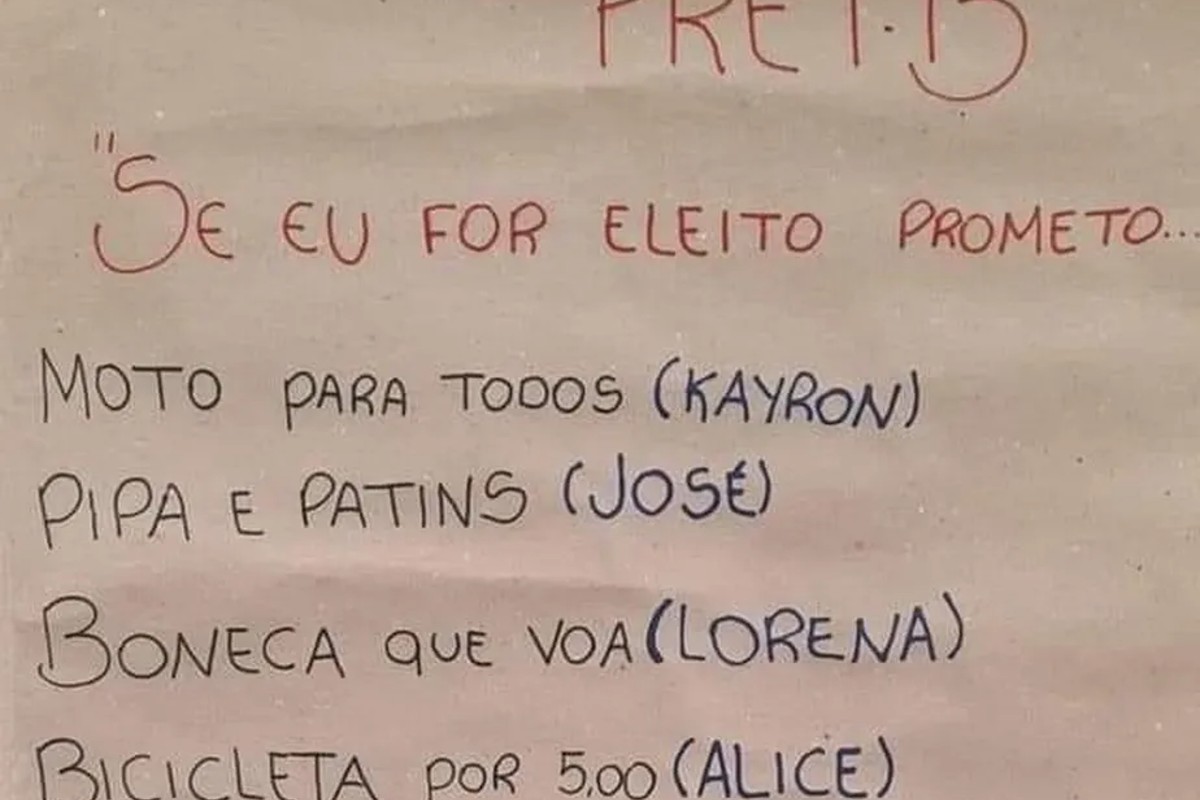 PRÉ I·B
"SE EU FOR ELEITO PROMETO...
MOTO PARA TODOS (KAYRON)
PIPA E PATINS (JOSÉ)
BONECA QUE VOA (LORENA)
BICICLETA POR 5,00 (ALICE)